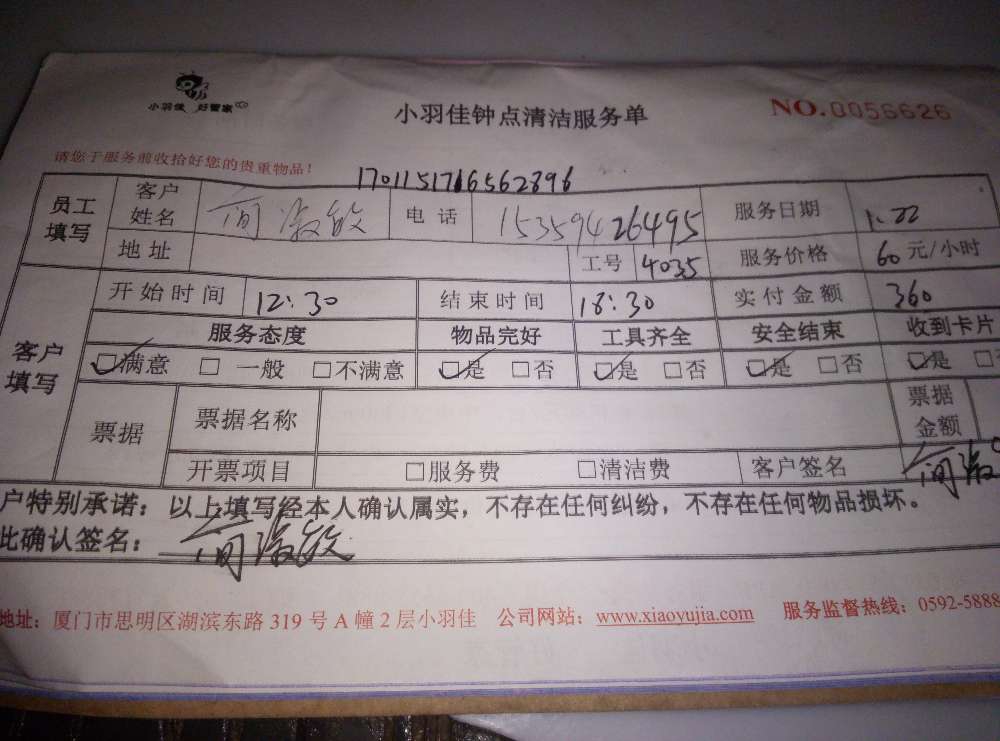 小羽佳 好管家
小羽佳钟点清洁服务单
NO.0056626
请您于服务前收拾好您的贵重物品！
1701151716562896
员工填写 客户姓名 简淑敏 电话 15359426495 服务日期 1.22
地址 工号 4035 服务价格 60元/小时
客户填写 开始时间 12:30 结束时间 18:30 实付金额 360
服务态度 物品完好 工具齐全 安全结束 收到卡片
☑满意 □一般 □不满意 ☑是 □否 ☑是 □否 ☑是 □否 ☑是 □
票据 票据名称 票据金额
开票项目 □服务费 □清洁费 客户签名 简淑
户特别承诺：以上填写经本人确认属实，不存在任何纠纷，不存在任何物品损坏。
此确认签名：简淑敏
地址：厦门市思明区湖滨东路 319 号 A 幢 2 层小羽佳 公司网站：www.xiaoyujia.com 服务监督热线：0592-5888